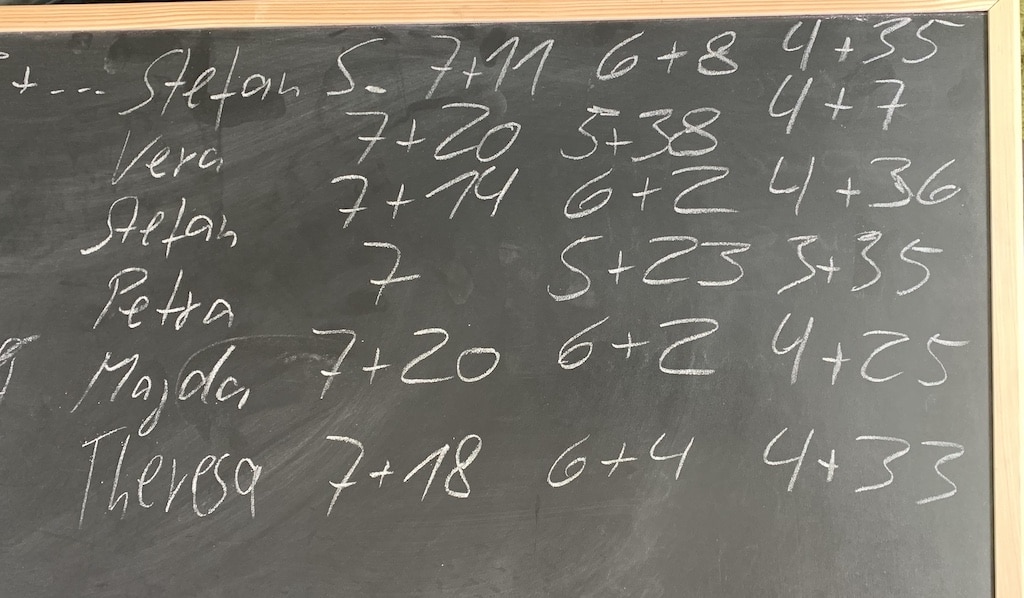 + ... Stefan S. 7+11 6+8 4+35
Vera 7+20 5+38 4+7
Stefan 7+14 6+2 4+36
Petra 7 5+23 3+35
Majda 7+20 6+2 4+25
Theresa 7+18 6+4 4+33